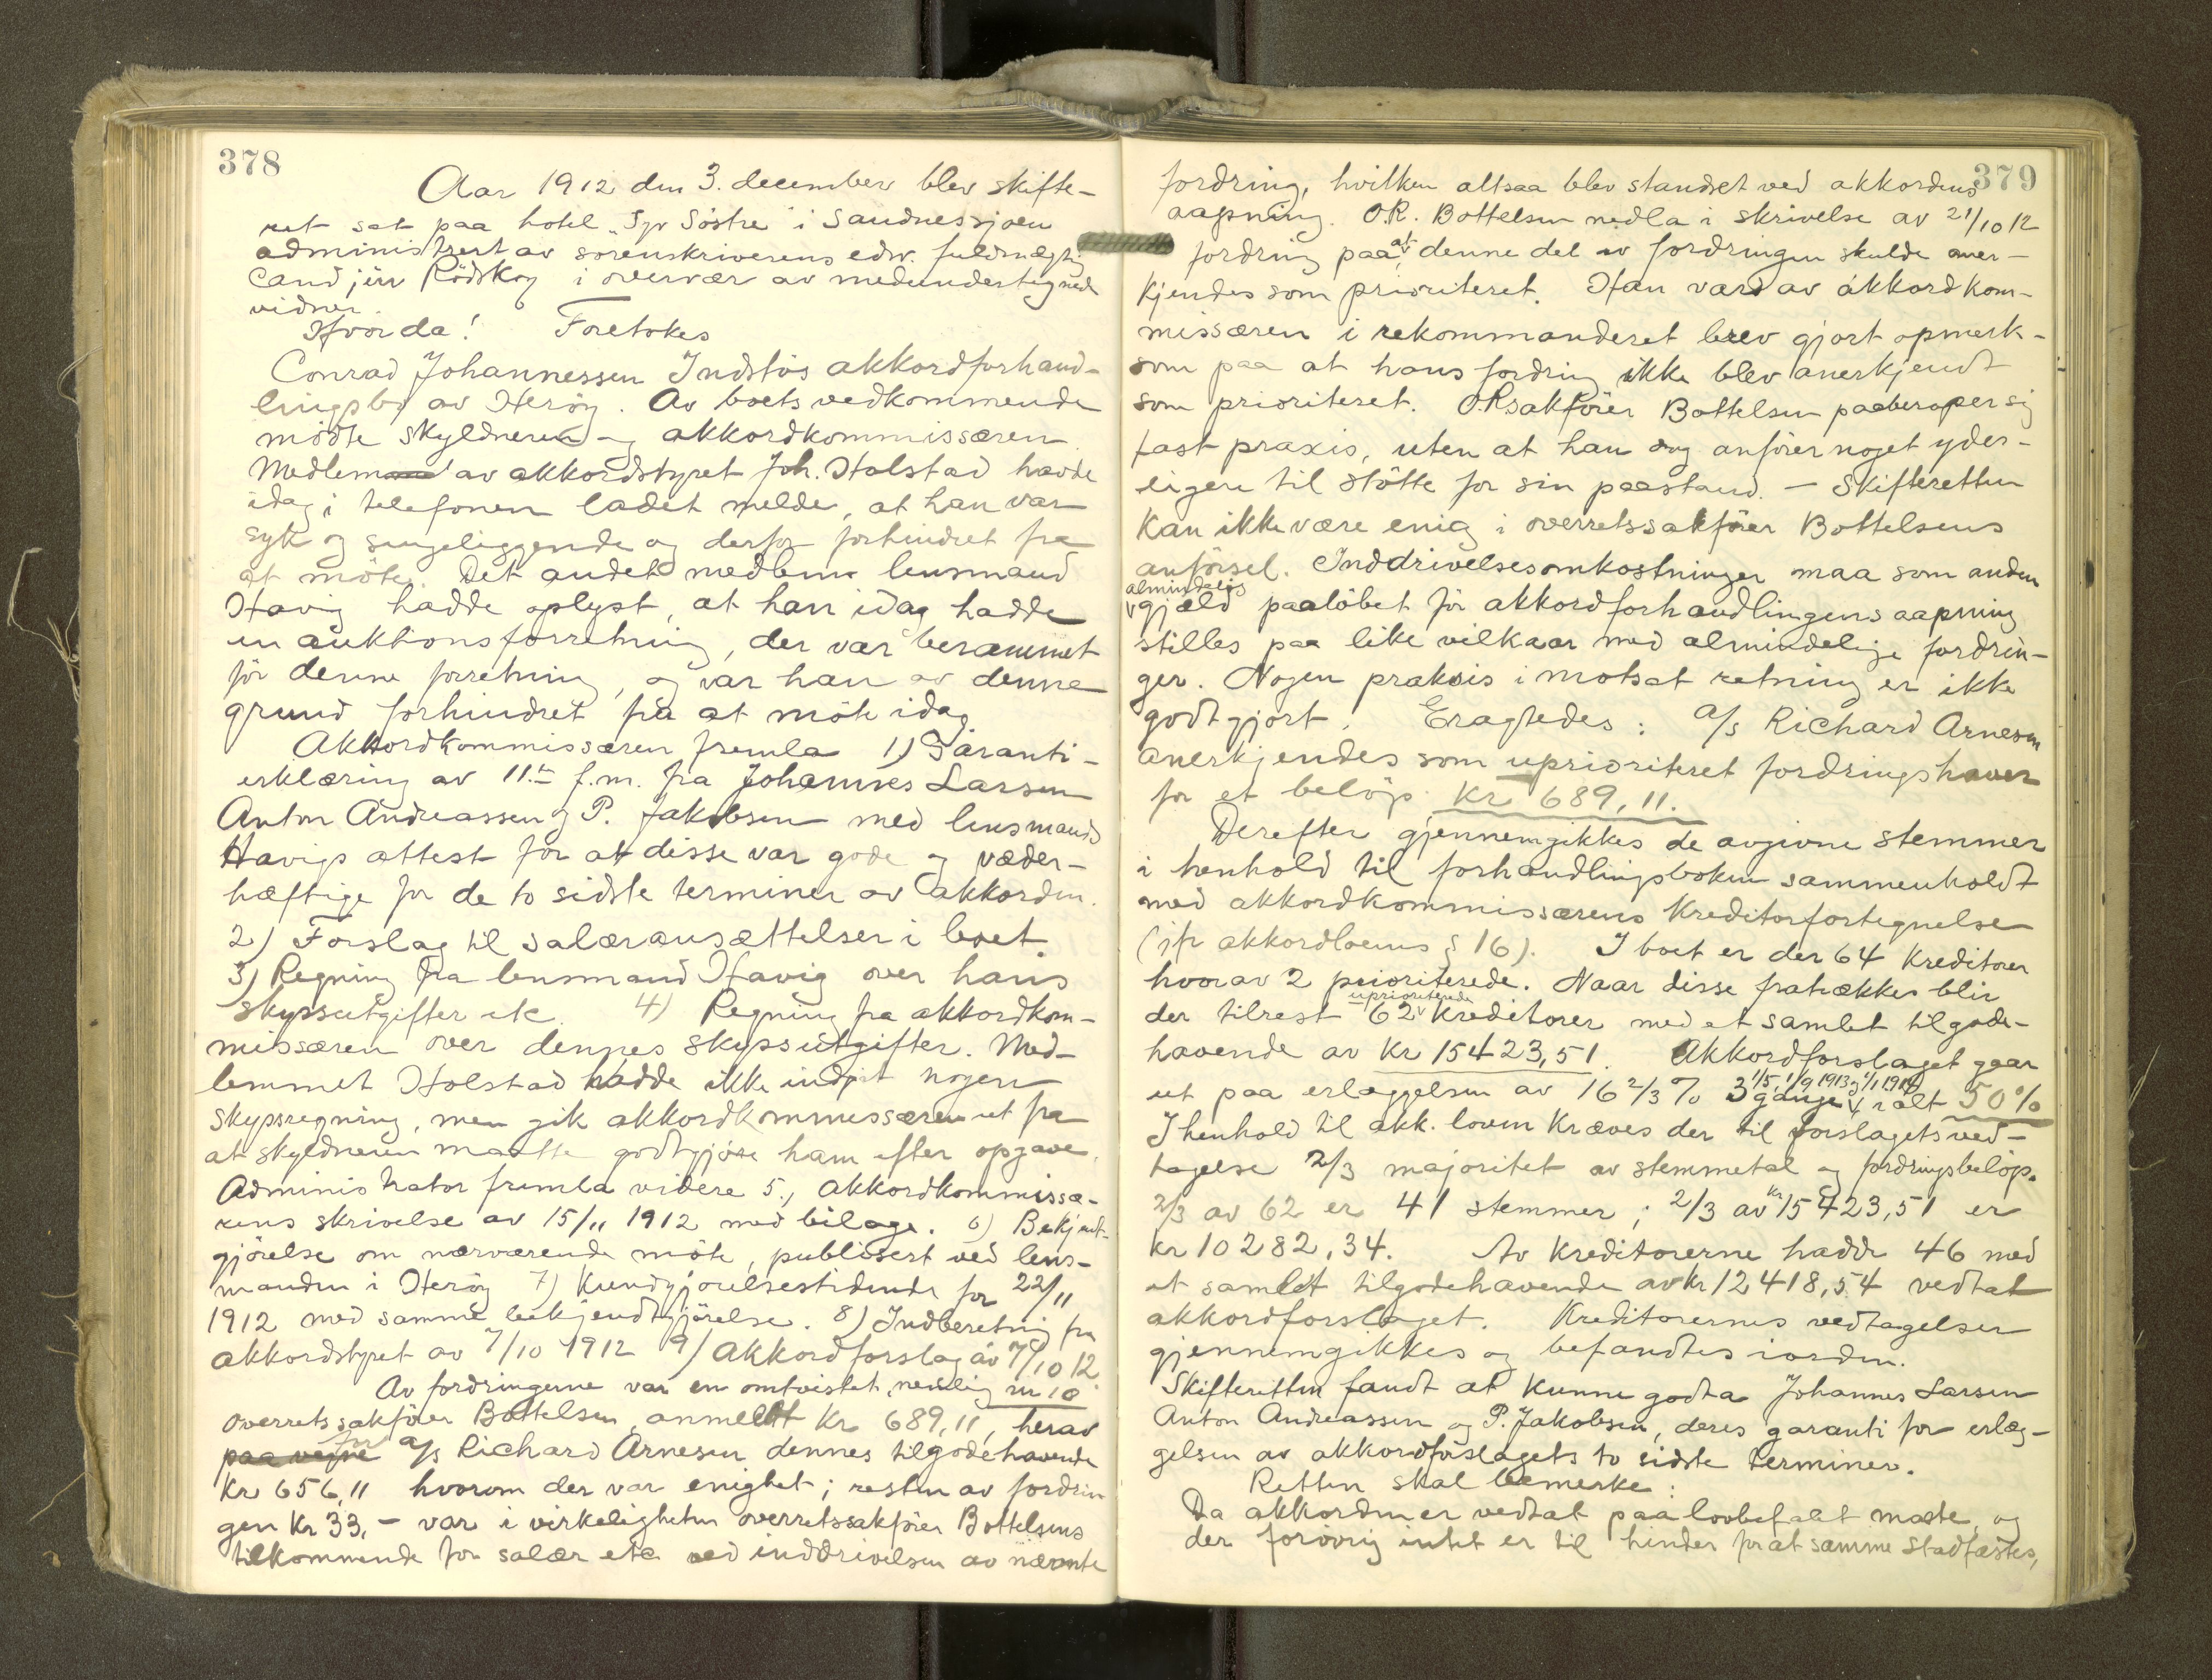 378
Aar 1912 den 3. december blev skifte-
ret sat paa hotel "Syv Söstre" i Sandnessjöen
administrert av sorenskriverens edsv. fuldmægtig
cand jur Rödskog i overvær av medundertegnede
vidner.
Hvorda! Foretokes
Conrad Johannessen Indstös akkordforhand-
lingsbo av Heröy. Av boets vedkommende
mödte skyldneren og akkordkommissæren
Medlem av akkordstyret Joh. Holstad havde
idag i telefonen ladet melde, at han var
syk og sengeliggende og derfor forhindret fra
at möte. Det andet medlem lensmand
Havig hadde oplyst, at han idag hadde
en auktionsforretning, der var berammet
för denne forretning, og var han av denne
grund forhindret fra at möte idag
Akkordkommissæren fremla 1) Garanti-
erklæring av 11.te f.m. fra Johannes Larsen
Anton Andreassen og P. Jakobsen med lensmand
Havigs attest for at disse var gode og væder-
hæftige for de to sidste terminer av akkorden.
2) Forslag til salæransættelser i boet
3) Regning fra lensmand Havig over hans
skyssutgifter etc. 4) Regning fra akkordkom-
missæren over dennes skyssutgifter. Med-
lemmet Holstad hadde ikke indgit nogen
skyssregning, men gik akkordkommissæren ut fra
at skyldneren maatte godtgjöre ham efter opgave.
Administrator fremla videre 5., akkordkommissæ-
rens skrivelse av 15/11 1912 med bilage. 6) Bekjendt-
gjörelse om nærværende möte, publisert ved lens-
manden i Heröy 7) Kundgjörelsestidende for 22/11
1912 med samme bekjendtgjörelse. 8) Indberetning fra
akkordstyret av 7/10 1912 9) Akkordforslag av 7/10 12
Av fordringerne var en omtvistet, nemlig nr 10
overretssakförer Bottelsen, anmeldt kr 689,11, herav
paa vegne for A/S Richard Arnesen dennes tilgodehavende
kr 656,11 hvorom der var enighet; resten av fordrin
gen kr 33,- var i virkeligheten overretssakförer Bottelsens
tilkommende for salær etc ved inddrivelsen av nævnte
379
fordring, hvilken altsaa blev standset ved akkordens
aapning. O.R. Bottelsen nedla i skrivelse av 21/10 12
fordring paa at denne del av fordringen skulde aner-
kjendes som prioriteret. Han vard av akkordkom-
missæren i rekommanderet brev gjort opmerk-
som paa at hans fordring ikke blev anerkjendt
som prioriteret. O.Rsakförer Bottelsen paaberoper sig
fast praxis, uten at han dog anförer noget yder-
ligere til stötte for sin paastand. - Skifteretten
kan ikke være enig i overretssakförer Bottelsens
anförsel. Inddrivelsesomkostninger maa som anden
almindelig gjæld paalöbet för akkordforhandlingens aapning
stilles paa like vilkaar med almindelige fordrin-
ger. Nogen praksis i motsat retning er ikke
godtgjort. Eragtedes: A/S Richard Arnesen
anerkjendes som uprioriteret fordringshaver
for et belöp kr 689,11.
Derefter gjennemgikkes de avgivne stemmer
i henhold til forhandlingsboken sammenholdt
med akkordkommissærens kreditorfortegnelse
(jfr akkordlovens § 16). I boet er der 64 kreditorer
hvorav 2 prioriterede. Naar disse fratrækkes blir
der tilrest 62 uprioriterede kreditorer med et samlet tilgode-
havende av kr 15423,51. Akkordforslaget gaar
ut paa erlæggelsen av 16 2/3 % 3 gange 1/5, 1/9 1913 og 1/1 1914 ialt 50%
I henhold til akk. loven kræves der til forslagets ved-
tagelse 2/3 majoritet av stemmetal og fordringsbelöp.
2/3 av 62 er 41 stemmer; 2/3 av kr 15423,51 er
kr 10282,34. Av kreditorerne hadde 46 med
et samlet tilgodehavende av kr 12418,54 vedtat
akkordforslaget. Kreditorernes vedtagelser
gjennemgikkes og befandtes iorden.
Skifteretten fandt at kunne godta Johannes Larsen
Anton Andreassen og P. Jakobsen, deres garanti for erlæg-
gelsen av akkordforslagets to sidste terminer.
Retten skal bemerke:
Da akkorden er vedtat paa lovbefalet maate, og
der forövrig intet er til hinder for at samme stadfæstes,